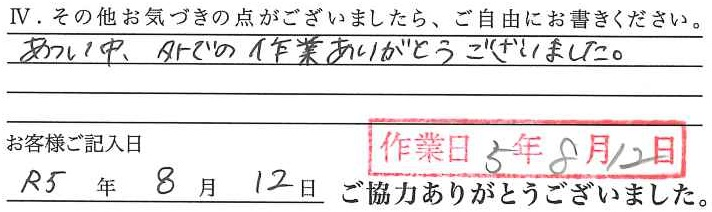 Ⅳ．その他お気づきの点がございましたら、ご自由にお書きください。
あつい中、外での作業ありがとうございました。
お客様ご記入日
作業日 5年8月12日
R5 年 8 月 12 日
ご協力ありがとうございました。